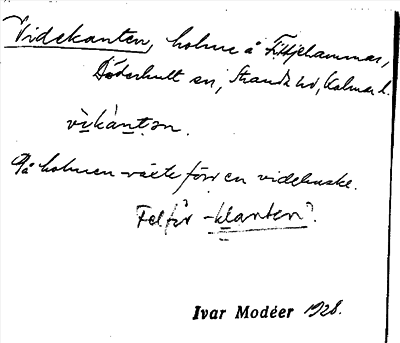 Videkanten, holme å Fittjehammar,
Döderhult sn, Stranda hd, Kalmar l.
vìkànṯən.
På holmen växte förr en videbuske.
Fel för -klanten?
Ivar Modéer 1928.